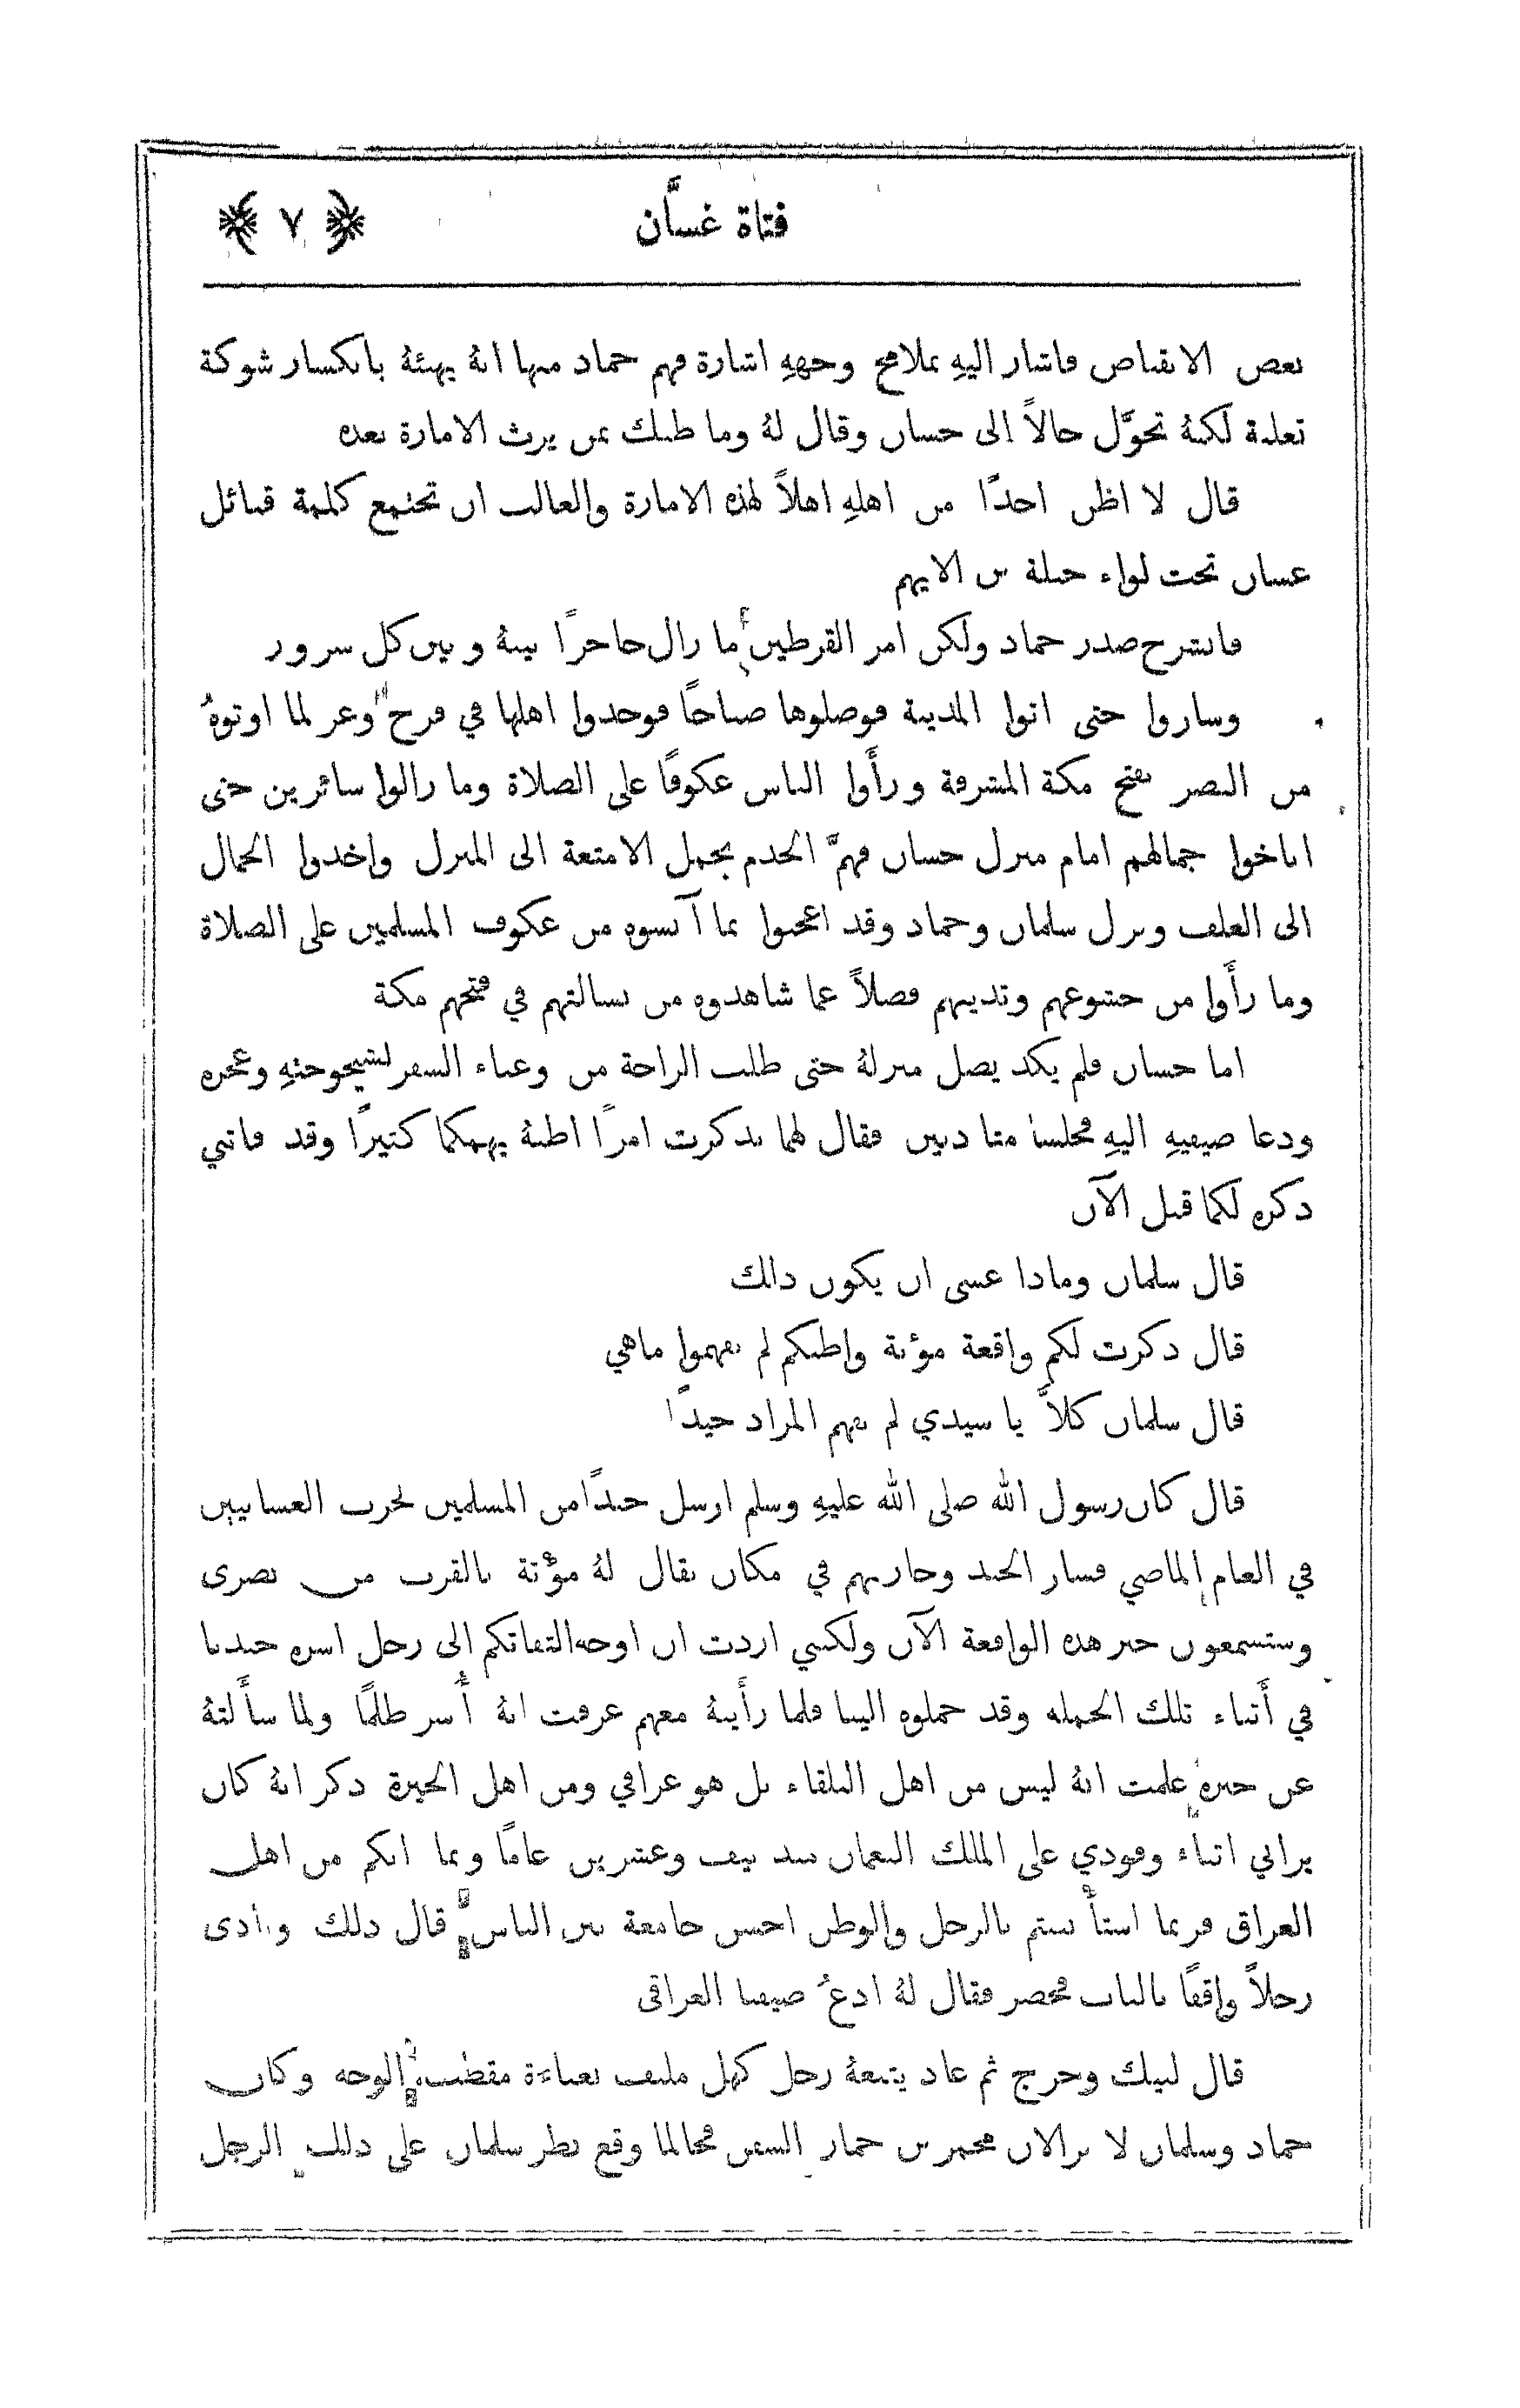 فتاة غسَّان ﴿ ٧ ﴾
بعض الانقباض فاشار اليهِ بملامح وجههِ اشارة فهم حماد منها انهُ يهنئهُ بانكسار شوكة
ثعلبة لكنهُ تحوَّل حالاً الى حسان وقال لهُ وما ظنك بمن يرث الامارة بعده
قال لا اظن احدًا من اهلهِ اهلاً لهذه الامارة والغالب ان تجتمع كلمة قبائل
غسان تحت لواء جبلة بن الايهم
فانشرح صدر حماد ولكن امر القرطين ما زال حاجزًا بينهُ وبين كل سرور
وساروا حتى اتوا المدينة فوصلوها صباحًا فوجدوا اهلها في فرح وعز لما اوتوهُ
من النصر بفتح مكة المشرفة ورأَوا الناس عكوفًا على الصلاة وما زالوا سائرين حتى
اناخوا جمالهم امام منزل حسان فهمَّ الخدم بحمل الامتعة الى المنزل واخذوا الجمال
الى العلف ونزل سلمان وحماد وقد اعجبوا بما آنسوه من عكوف المسلمين على الصلاة
وما رأَوا من خشوعهم وتدينهم فضلاً عما شاهدوه من بسالتهم في فتحهم مكة
اما حسان فلم يكد يصل منزلهُ حتى طلب الراحة من وعثاء السفر لشيخوختهِ وعجزه
ودعا ضيفيهِ اليهِ فجلسا متادبين فقال لهما تذكرت امرًا اظنهُ يهمكما كثيرًا وقد فاتني
ذكره لكما قبل الآن
قال سلمان وماذا عسى ان يكون ذالك
قال ذكرت لكم واقعة مؤتة واظنكم لم تفهموا ماهي
قال سلمان كلاَّ يا سيدي لم نفهم المراد جيدًا
قال كان رسول الله صلى الله عليهِ وسلم ارسل جندًا من المسلمين لحرب الغسانيين
في العام الماضي فسار الجند وحاربهم في مكان يقال لهُ مؤْتة بالقرب من بصرى
وستسمعون خبر هذه الواقعة الآن ولكنني اردت ان اوجه التفاتكم الى رجل اسره جندنا
في أَثناء تلك الحمله وقد حملوه الينا فلما رأَيتهُ معهم عرفت انهُ أُسر ظلمًا ولما سأَلتهُ
عن خبره علمت انهُ ليس من اهل البلقاء بل هو عراقي ومن اهل الحيرة ذكر انهُ كان
يراني اثناء وفودي على الملك النعمان منذ نيف وعشرين عامًا وبما انكم من اهل
العراق فربما استأْنستم بالرجل والوطن احسن جامعة بين الناس قال ذلك ونادى
رجلاً واقفًا بالباب فحضر فقال لهُ ادعُ ضيفنا العراقي
قال لبيك وخرج ثم عاد يتبعهُ رجل كهل ملتف بعباءة مقطب الوجه وكان
حماد وسلمان لا يزالان السفر فحالما وقع نظر سلمان على ذلك الرجل